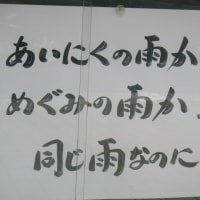 あいにくの雨か
めぐみの雨か、
同じ雨なのに